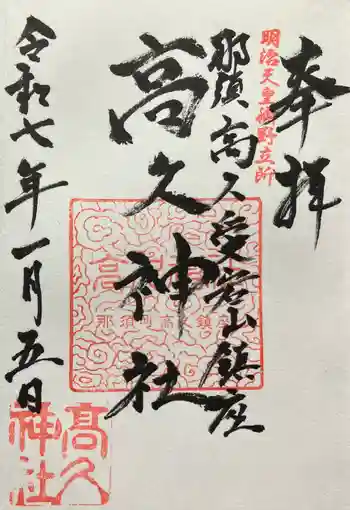 奉拝
明治天皇御野立所
那須高久愛宕山鎮座
高久神社
令和七年一月五日
高久神社
那須町高久鎮座
高久神社